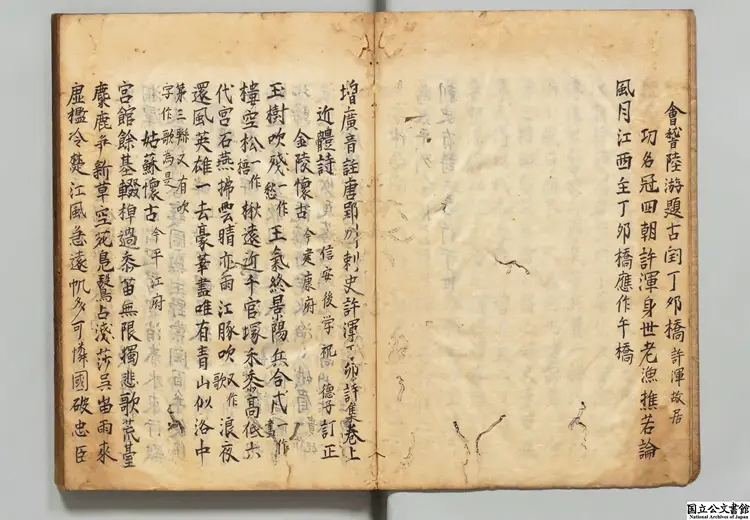 會稽陸游題古閏丁夘橋 許渾故居
功名冠四朝許渾身世老漁樵若論
風月江西主丁夘橋應作午橋
增廣音註唐郢州刺史許渾丁夘詩集卷上
信安後学祝德子訂正
近體詩
金陵懷古 今建康府
玉樹吹殘一作愁王氣終景陽兵合戍一作畫
樓空松一作梧楸遠近千官塚禾黍高低六
代宮石燕拂雲晴亦雨江豚吹又作歌浪夜
還風英雄一去豪華盡唯有青山似洛中
第三聯又有吹字作歌為是
姑蘇懷古 今平江府
宮館餘基輟棹過黍苗無限獨悲歌荒臺
麋鹿爭新草空苑鳧鷖占淺莎吳岫雨來
虛檻冷楚江風急遠帆多可憐國破忠臣
国立公文書館
National Archives of Japan